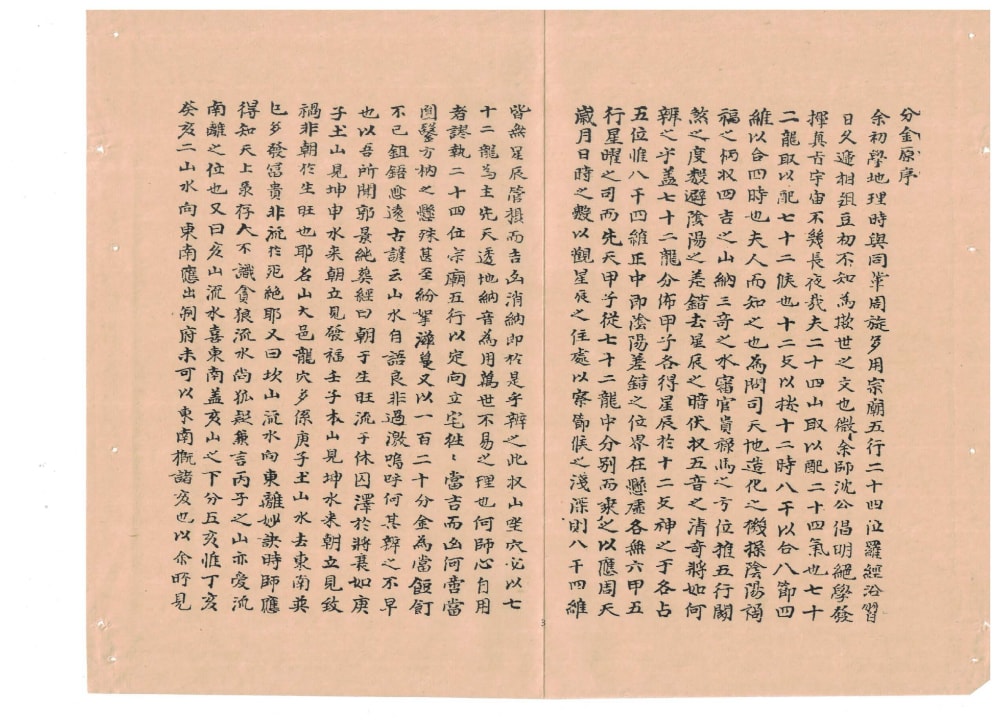 分金原序
余初學地理時與同輩周旋多用宗廟五行二十四位羅經沿習
日久遞相俎豆初不知為欺世之文也微余師沈公倡明絕學發
揮真旨宇宙不幾長夜哉夫二十四山取以配二十四氣也七十
二龍取以配七十二候也十二支以揆十二時八干以合八節四
維以合四時也夫人而知之也為問司天地造化之機操陰陽禍
福之柄收四吉之山納三奇之水審官貴祿馬之方位推五行闕
煞之度數避陰陽之差錯去星辰之暗伏收五音之清奇將如何
辨之乎蓋七十二龍分佈甲子各得星辰於十二支神之下各占
五位惟八干四維正中即陰陽差錯之位界在懸虛各無六甲五
行星曜之司而先天甲子從七十二龍中分别而乘之以應周天
歲月日時之數以觀星辰之住處以察節候之淺深則八干四維
皆無星辰管攝而吉凶消納即於是乎辨之此收山坐穴必以七
十二龍為主先天透地納音為用萬世不易之理也何師心自用
者謬執二十四位宗廟五行以定向立宅往往當吉而凶何啻當
圓鑿方枘之懸殊甚至紛挐薛蔓又以一百二十分金為當餖飣
不已鉏鋙愈遠古諺云山水自語良非過激嗚呼何其辨之不早
也以吾所聞郭景純葬經曰朝于生旺流于休囚澤於將衰如庚
子土山見坤申水来朝立見發福壬子木山見坤水来朝立見致
禍非朝於生旺也耶名山大邑龍穴多係庚子土山水去東南巽
巳多發富貴非流於死絕耶又曰坎山流水向東離妙訣時師應
得知天上景存人不識貪狼流水尚狐疑兼言丙子之山亦爱流
南離之位也又曰亥山流水喜東南蓋亥山之下分五亥惟丁亥
癸亥二山水向東南應出朔府未可以東南概諸亥也以余所見
3